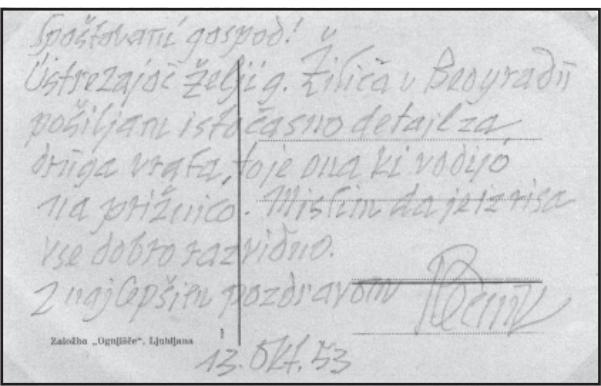 Spoštovani gospod!
Ustrezajoč želji g. Žiliča v Beogradu
pošiljam istočasno detajl za
druga vrata, to je ona ki vodijo
na prižnico. Mislim da je iz risa
vse dobro razvidno.
Z najlepšim pozdravom
Založba „Ognjišče“, Ljubljana
13. Okt. 53